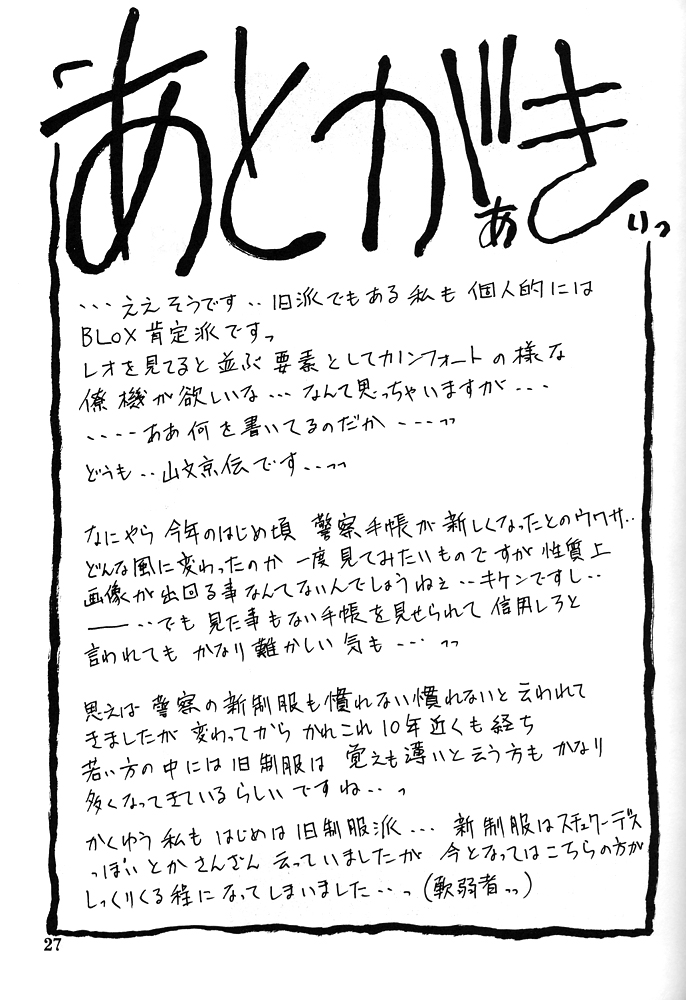 あとがきぁぃっ
・・・ええそうです・・旧派でもある私も 個人的には
BLOX肯定派ですっ
レオを見てると並ぶ要素としてカノンフォートの様な
僚機が欲しいな・・・なんて思っちゃいますが・・・
・・・・ああ何を書いてるのだか・・・っっ
どうも・・山文京伝です・・っっ
なにやら今年のはじめ頃 警察手帳が新しくなったとのウワサ・・
どんな風に変わったのか 一度見てみたいものですが 性質上
画像が出回る事なんてないんでしょうねぇ・・キケンですし・・
――・・でも 見た事もない手帳を見せられて 信用しろと
言われても かなり難かしい気も・・・っっ
思えば 警察の新制服も慣れない慣れないと云われて
きましたが 変わってから かれこれ10年近くも経ち
若い方の中には旧制服は 覚えも薄いと云う方も かなり
多くなってきているらしいですね・・っ
かくゆう私も はじめは旧制服派・・・ 新制服はスチュワーデス
っぽいとかさんざん云っていましたが 今となってはこちらの方が
しっくりくる程になってしまいました・・っ(軟弱者っっ)
27